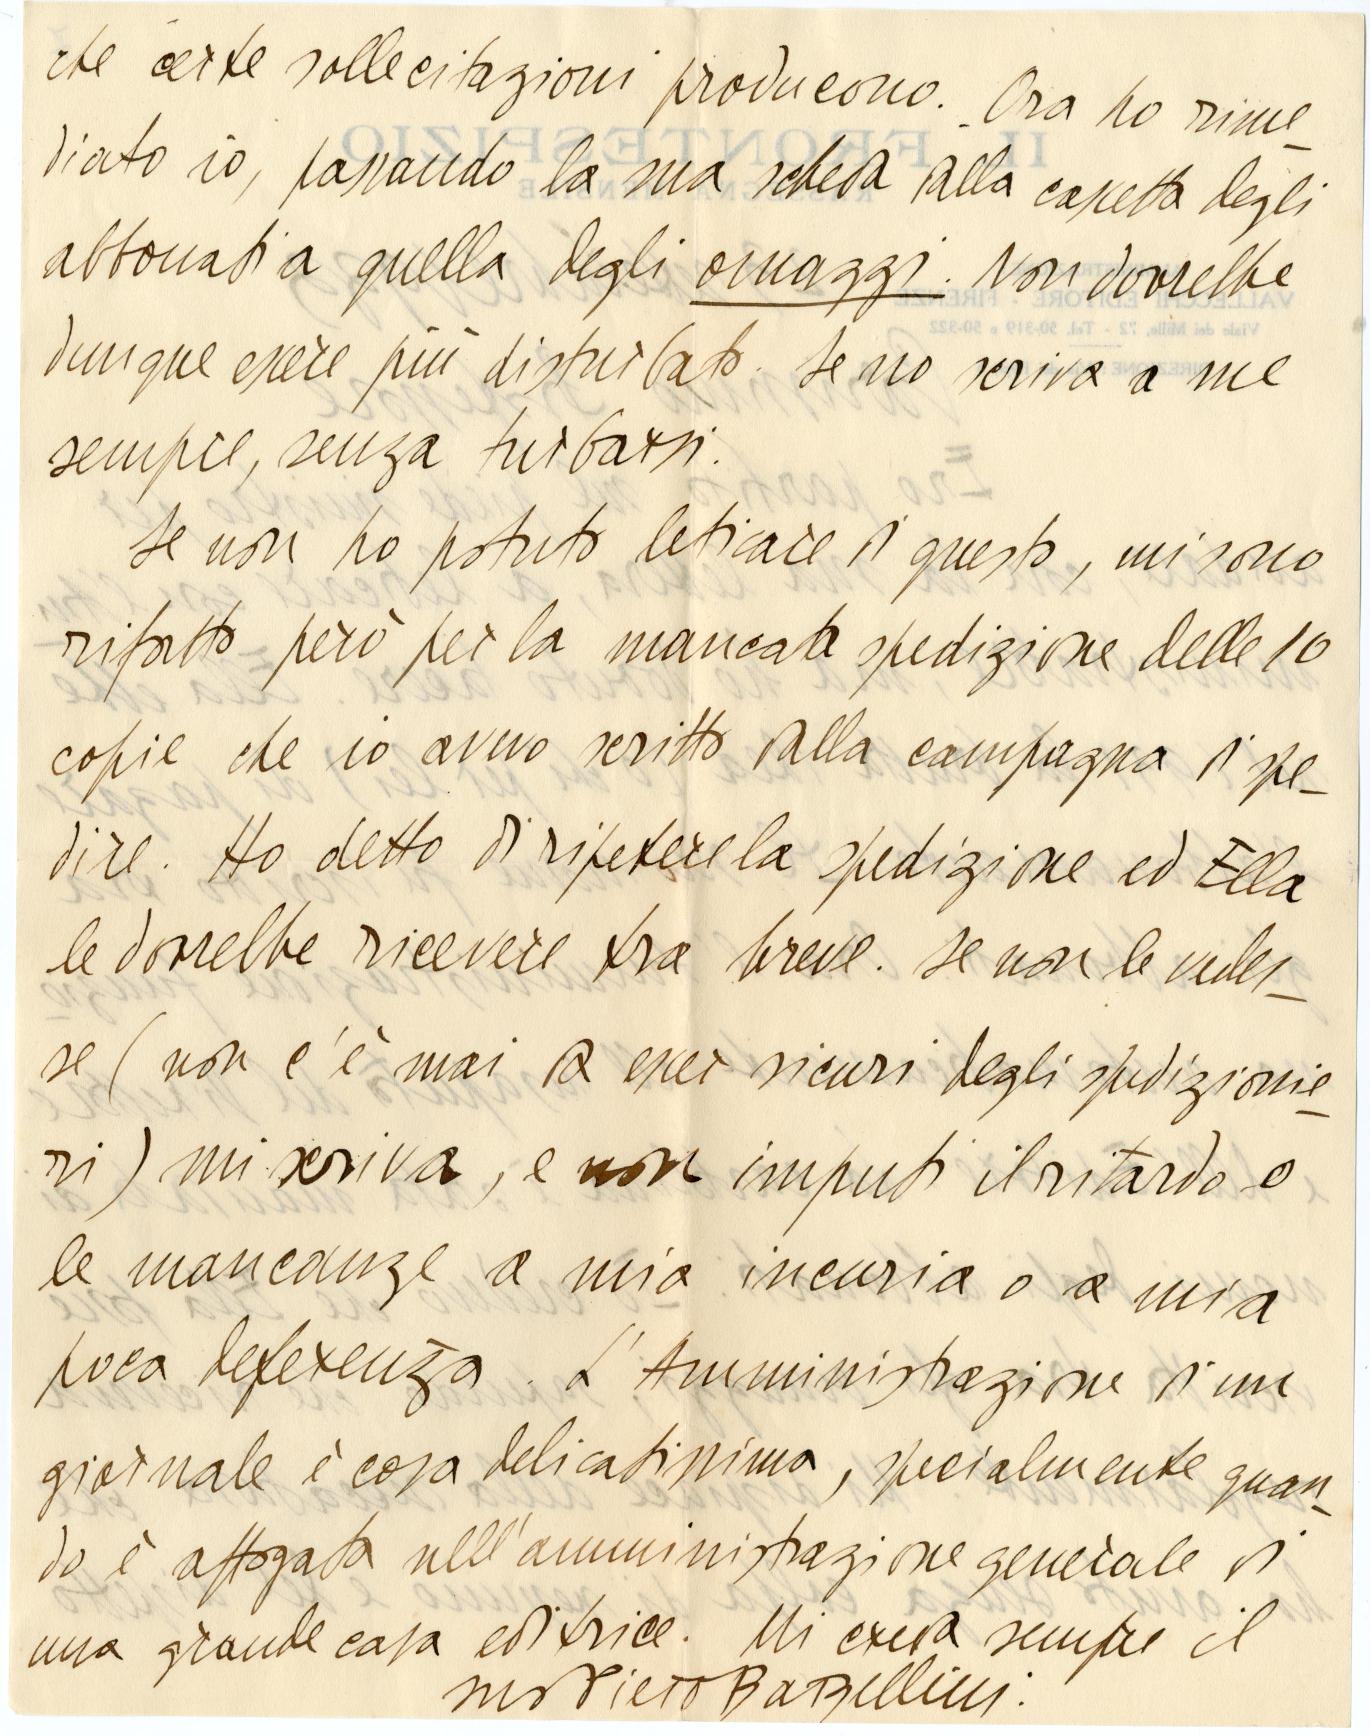 che certe sollecitazioni producono. Ora ho rime-
diato io, passando la sua scheda dalla casetta degli
abbonati a quella degli omaggi. Non dovrebbe
dunque essere più disturbato. Se no scriva a me
sempre, senza turbarsi.
Se non ho potuto leticare di questo, mi sono
rifatto però per la mancata spedizione delle 10
copie che io avevo scritto dalla campagna di spe-
dire. Ho detto di ripetere la spedizione ed Ella
le dovrebbe ricevere tra breve. Se non le vedes-
se (non c'è mai da esser sicuri degli spedizionie-
ri) mi scriva, e non imputi il ritardo o
le mancanze a mia incuria o a mia
poca deferenza. L'Amministrazione di un
giornale è cosa delicatissima, specialmente quan-
do è affogata nell'amministrazione generale di
una grande casa editrice. Mi creda sempre il
suo Piero Bargellini.
IL FRONTESPIZIO
RASSEGNA MENSILE
VALLECCHI EDITORE - FIRENZE
Viale dei Mille, 72 - Tel. 50-319 e 50-322